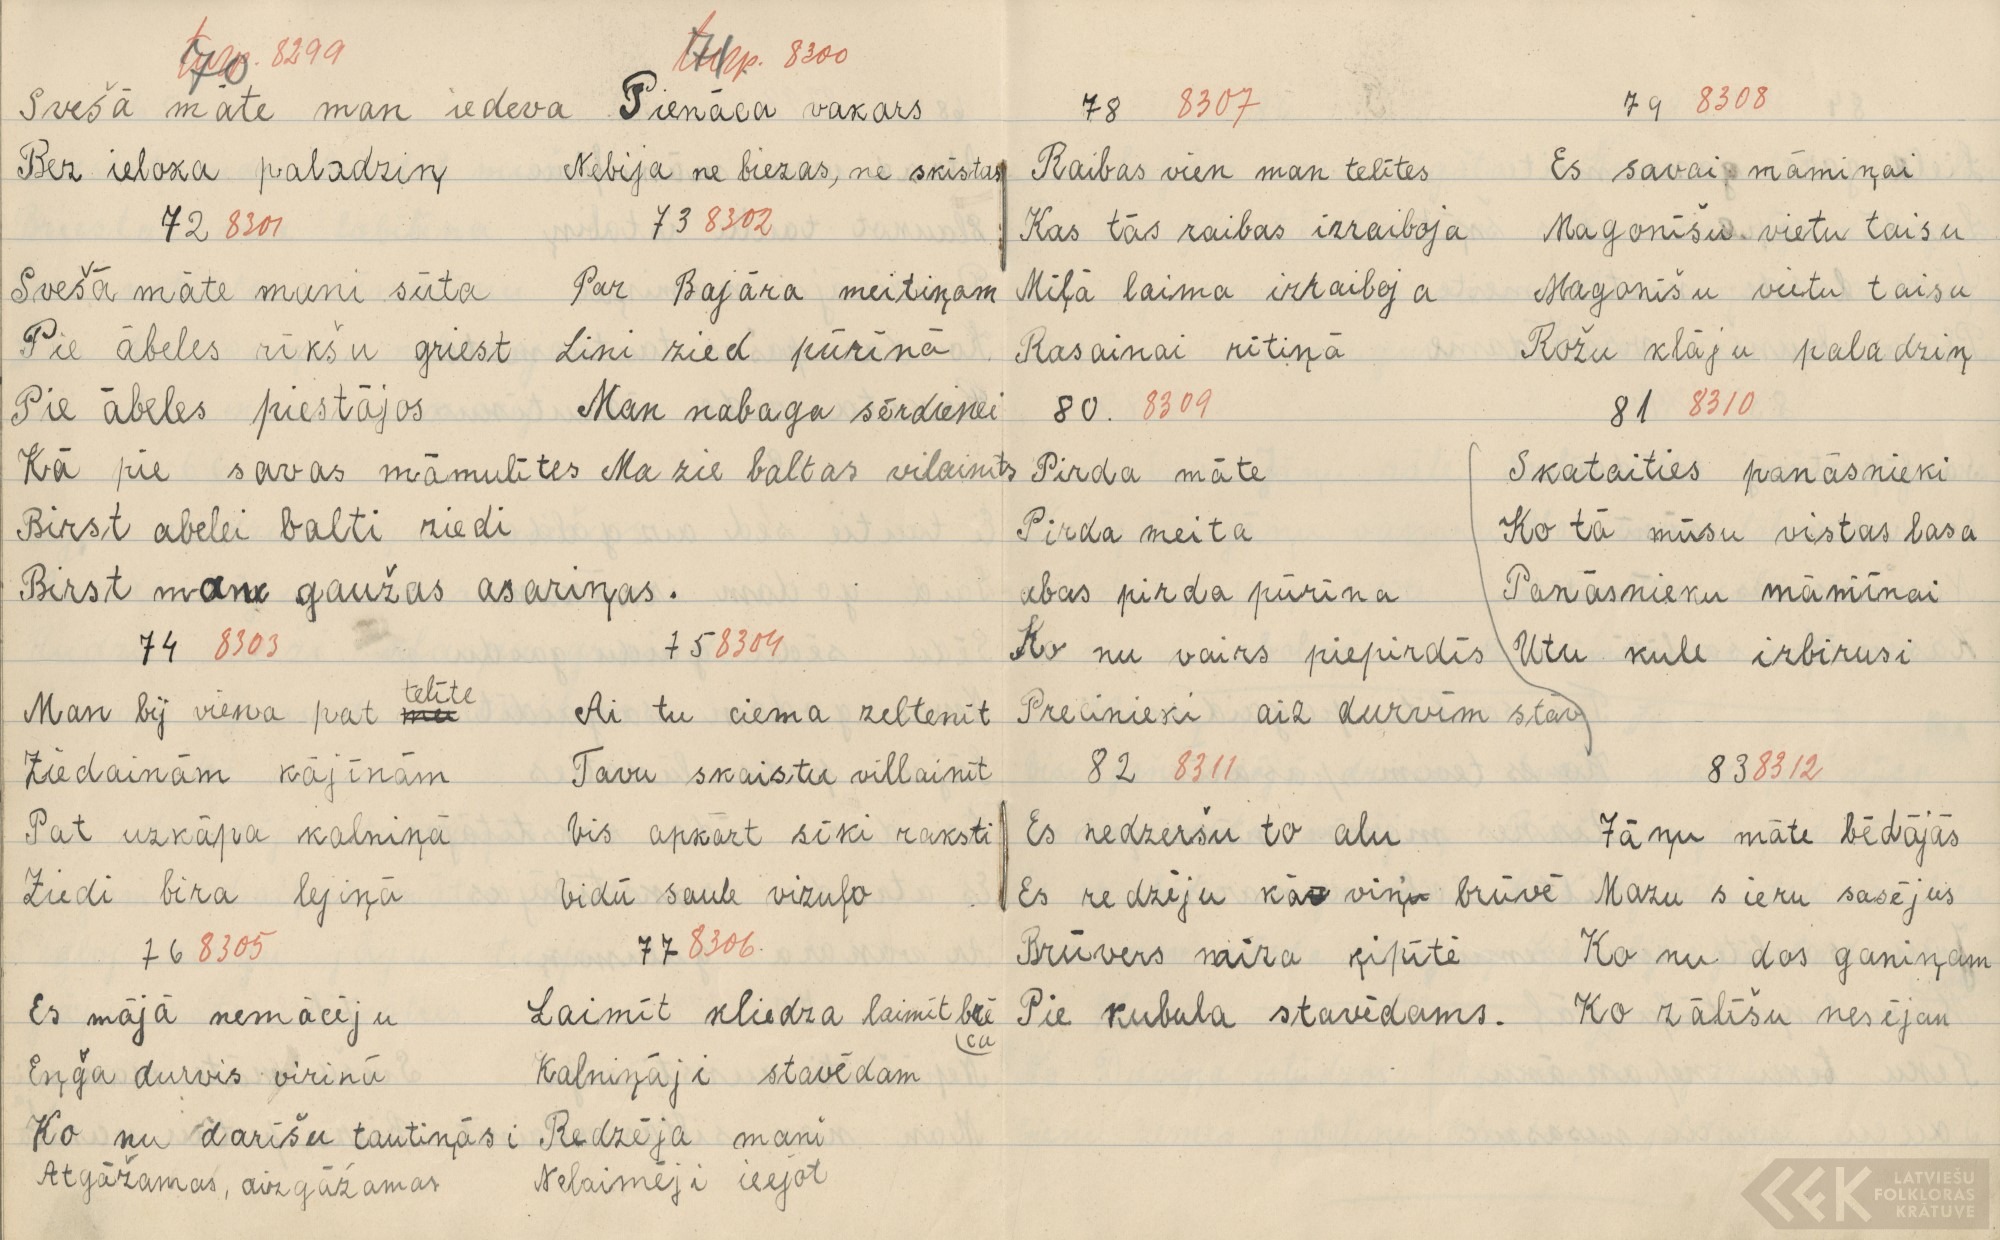 turp. 8299
70
Svešā māte man iedeva
Bez ieloka paladziņ
turp. 8300
71
Pienāca vakars
Nebija ne biezas, ne skīstas
72 8301
Svešā māte muni sūta
Pie ābeles rīkšu griest
Pie ābeles piestājos
Kā pie savas māmulītes
Birst abelei balti ziedi
Birst man gaužas asariņas.
73 8302
Par Bajāra meitiņam
Lini zied pūrīnā
Man nabaga sērdienei
Ma zie baltas vilainīts
74 8303
Man bij viena pat telīte
Ziedainām kājīnām
Pat uzkāpa kalniņā
Ziedi bira lejiņā
75 8304
Ai tu ciema zeltenīt
Tavu skaistu villainīt
Vis apkārt sīki raksti
Vidū saule vizuļo
76 8305
Es mājā nemācēju
Eņģa durvis virinā
Ko nu darīšu tautiņās i
Atgāžamas, aizgāžamas
77 8306.
Laimīt kliedza laimīt brē
ca
Kalniņāji stavēdam
Redzēja mani
Nelaimēji ieejot
78 8307
Raibas vien man telītes
Kas tās raibas izraiboja
Miļā laima izraiboja
Rasainai rītiņā
79 8308
Es savai māmiņai
Magonīšu vietu taisu
Magonīšu vietu taisu
Rožu klāju paladziņ
80. 8309
Pirda māte
Pirda meita
abas pirda pūrīna
Ko nu vairs piepirdīs
Precinieki aiz durvīm stāv
81 8310
Skataities panāsnieki
Ko tā mūsu vistas lasa
Panāsnieku māmīnai
Utu kule izbirusi
82 8311
Es nedzeršu to alu
Es redzēju kā viņu brūvē
Brūvers miza ķipītē
Pie kubula stavēdams.
83 8312
Jāņu māte bēdājās
Mazu sieru sasējus
Ko nu dos ganiņam
Ko zālīšu nesējau
LATVIEŠU
FOLKLORAS
KRĀTUVE